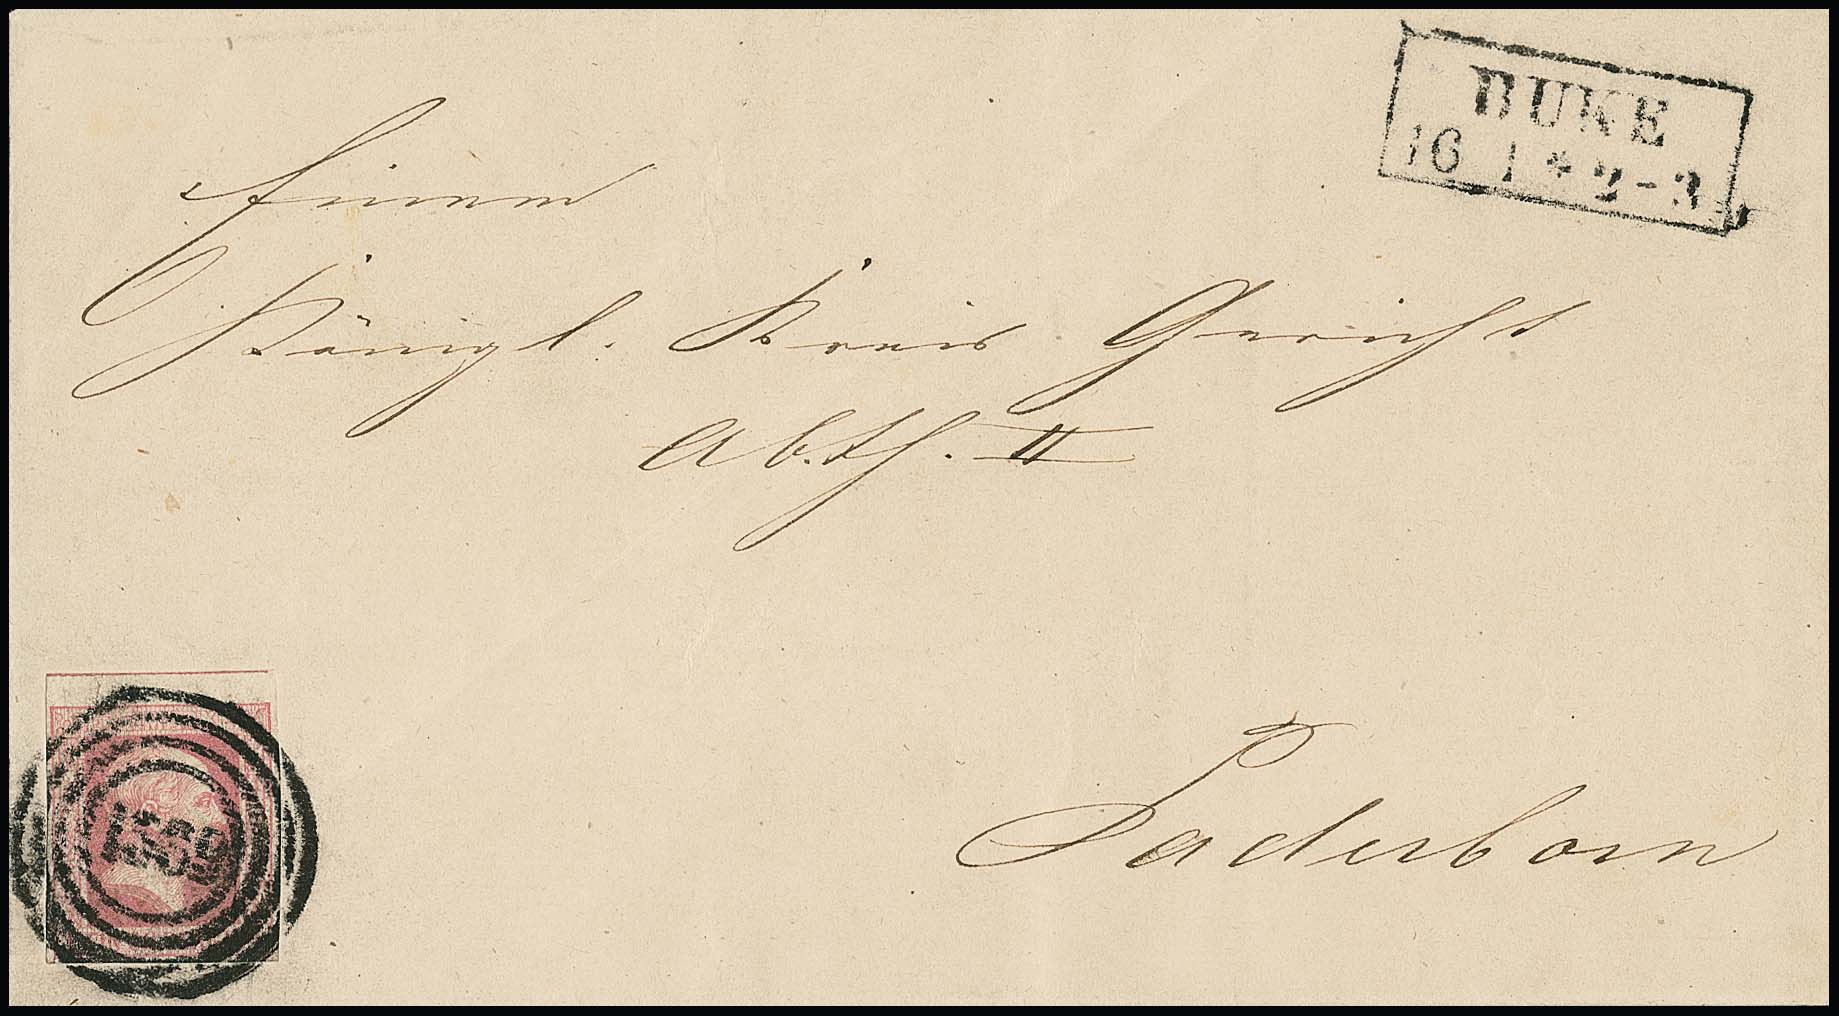 BUKE
16 1 * 2-3
Einem
Königl. Kreis Gericht
Abth. II
Paderborn